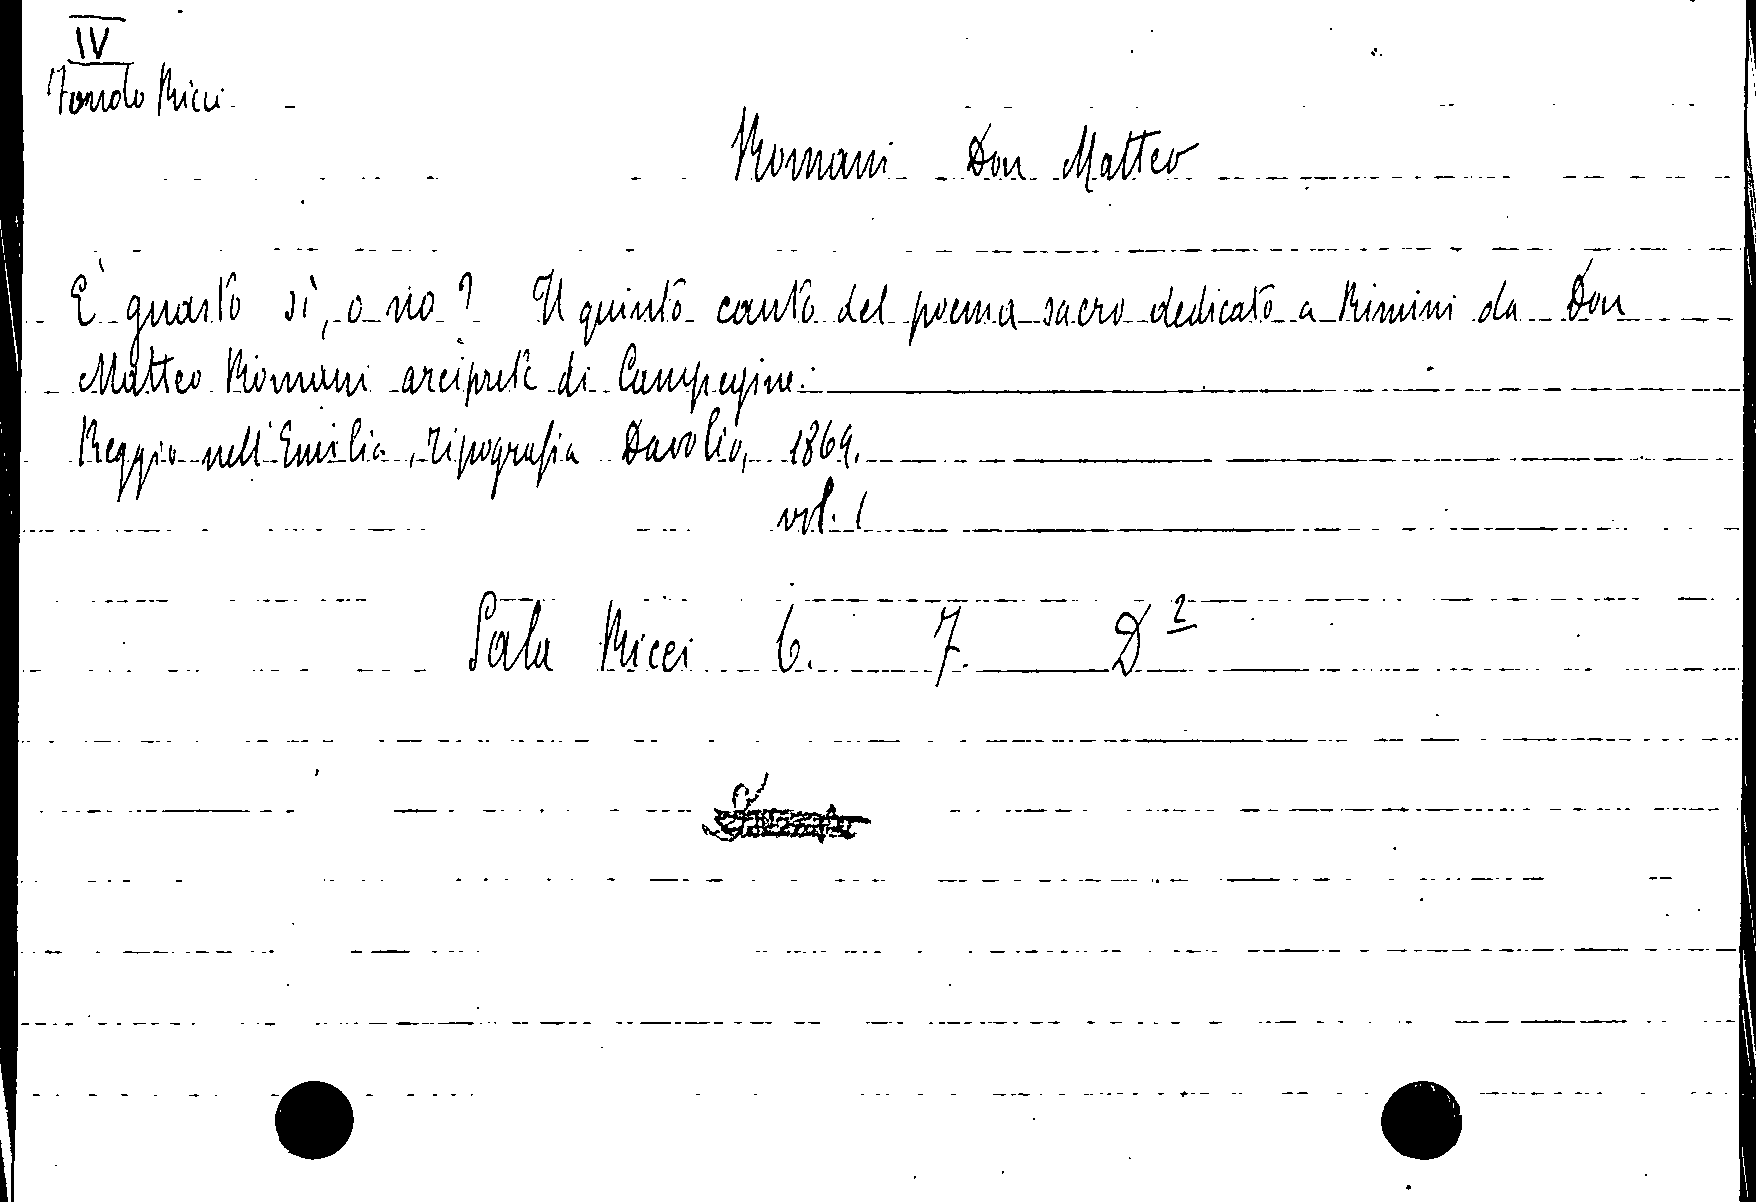 IV
Fondo Ricci
Romani Don Matteo
È guasto sì, o no? Il quinto canto del poema sacro dedicato a Rimini da Don
Matteo Romani arciprete di Campegine.
Reggio nell'Emilia, Tipografia Davolio, 1869.
vol. 1
Sala Ricci 6. 7. D 2